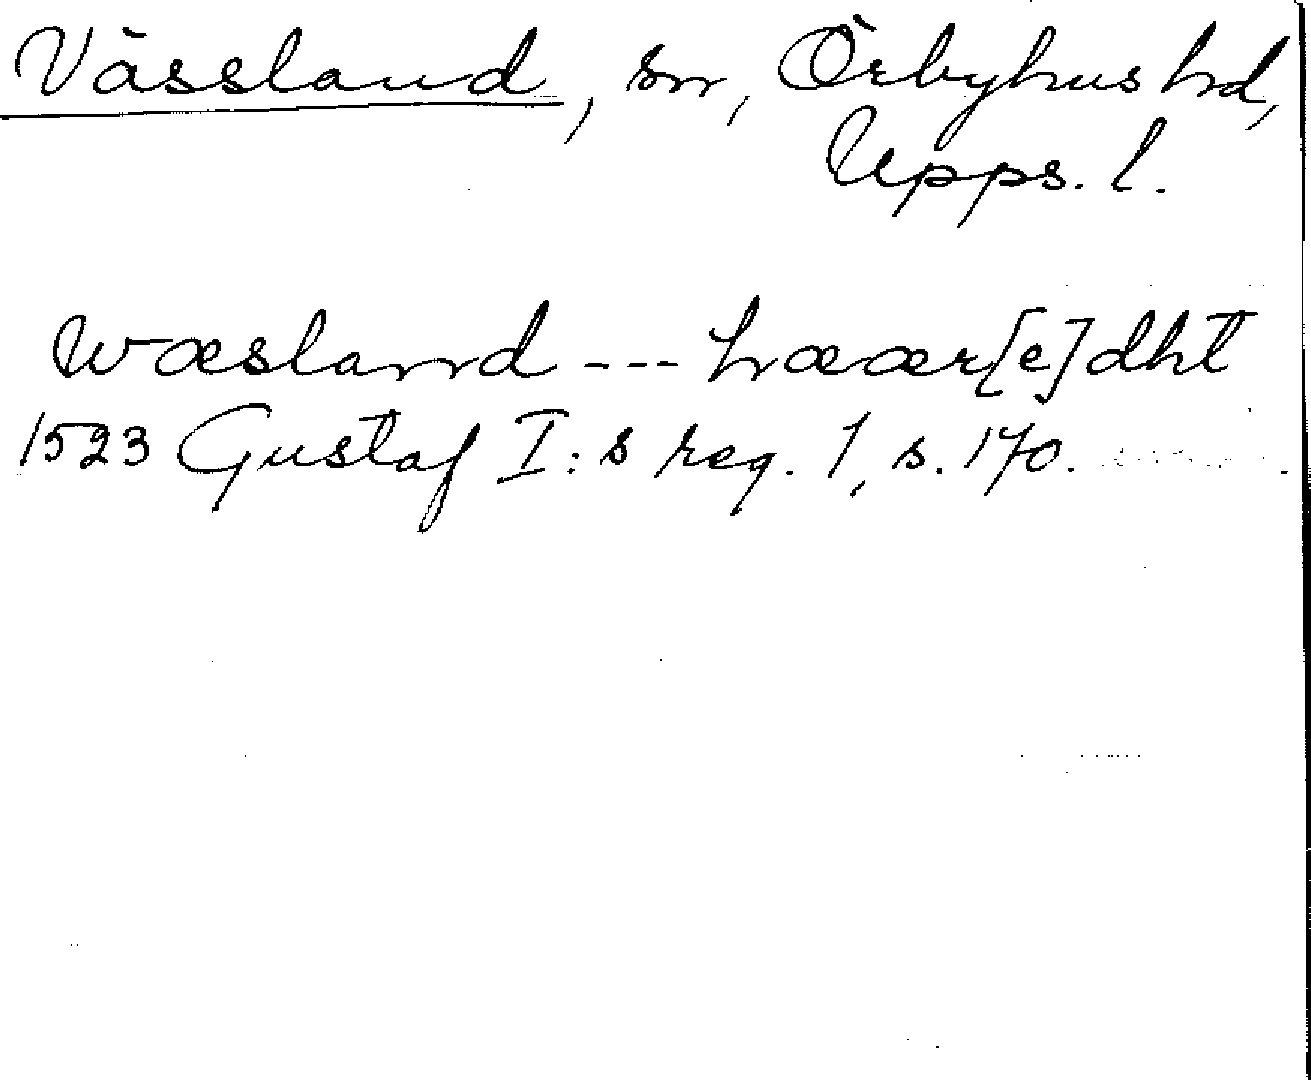 Vässland, sn, Örbyhus hd,
Upps. l.
Wæsland --- hæær[e]dht
1523 Gustaf I:s reg. 1, s. 170.